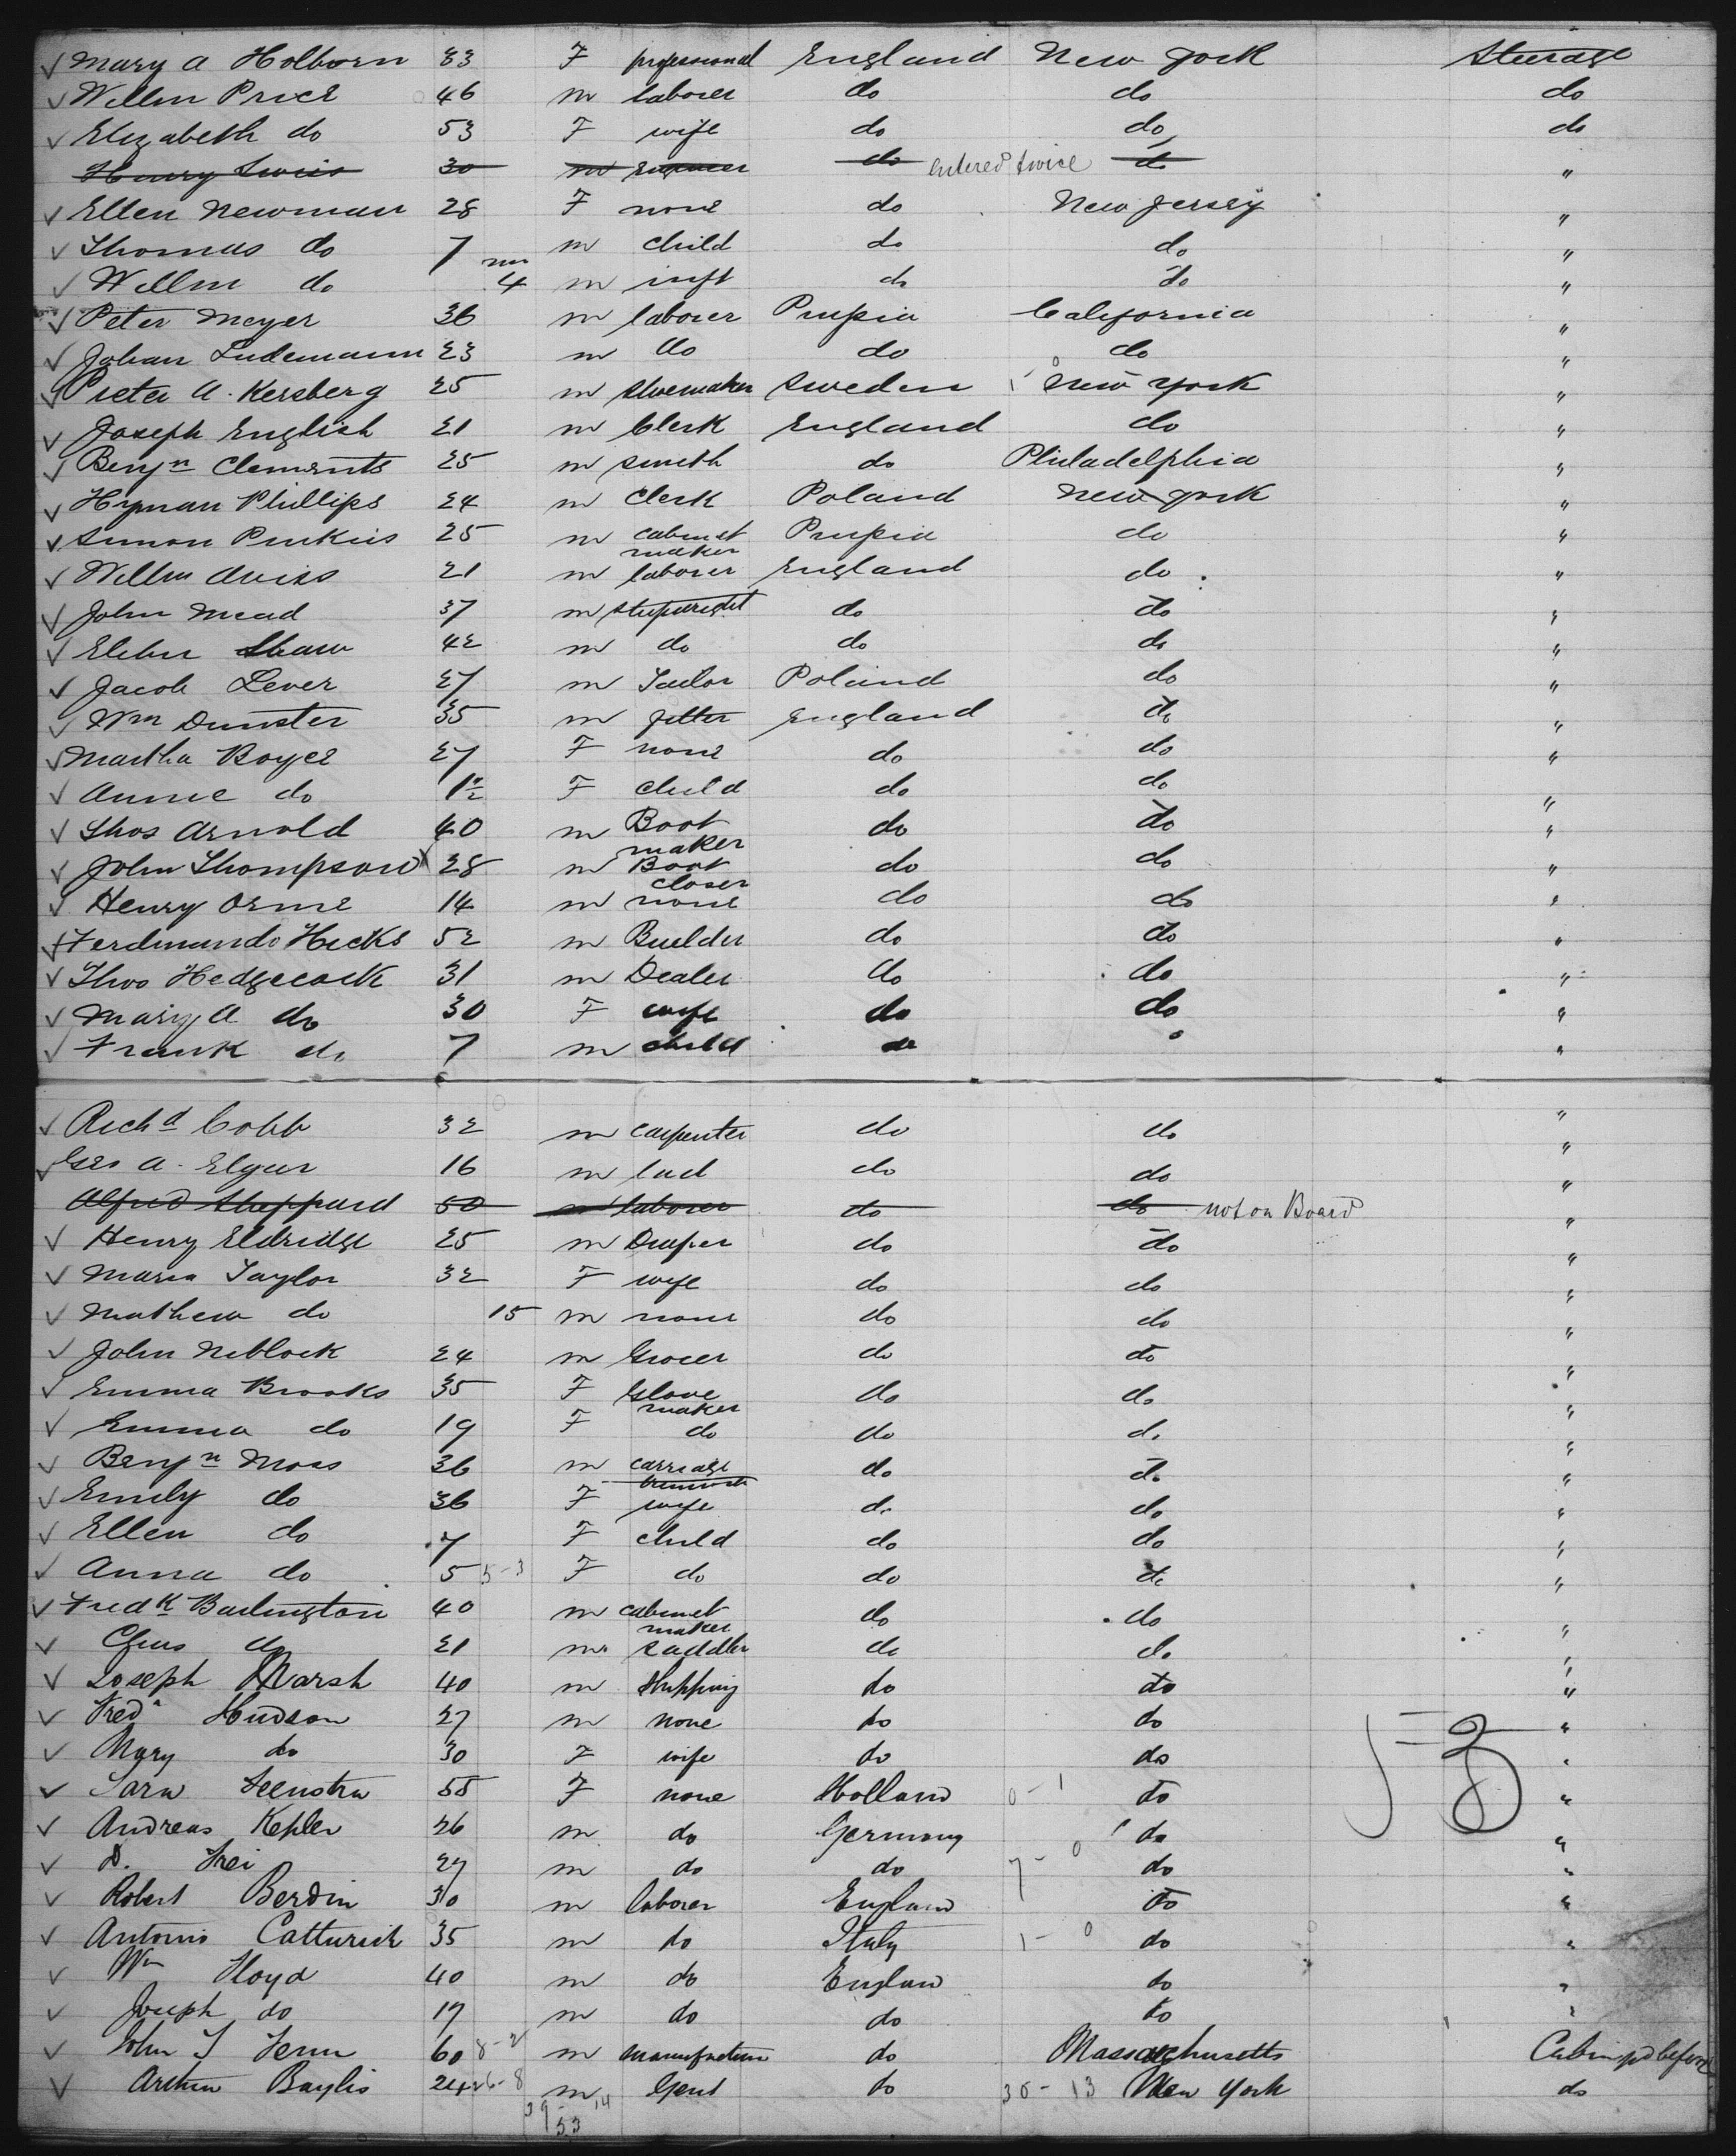 Mary A Holborn 33 F professional England New York Steerage
Willm Price 46 m laborer do do do
Elizabeth do 53 F wife do do do
Henry Swiss 30 m Engineer do entered twice do "
Ellen Newman 28 F none do New Jersey "
Thomas do 7 m child do do "
Willm do mn 4 m inft do do "
Peter Meyer 36 m laborer Prussia California "
Johan Ludemann 23 m do do do "
Pieter A. Kersberg 25 m shoemaker Sweden New York "
Joseph English 21 m Clerk England do "
Benjn Clements 25 m smith do Philadelphia "
Hyman Phillips 24 m Clerk Poland New York "
Simon Pinkus 25 m cabinet maker Prussia do "
Willm Aviss 21 m laborer England do "
John Mead 37 m shipwright do do "
Elihu Shaw 42 m do do do "
Jacob Lever 27 m Tailor Poland do "
Wm Dunster 35 m fitter England do "
Martha Boyce 27 F none do do "
Annie do 1½ F child do do "
Thos Arnold 40 m Boot maker do do "
John Thompson 28 m Boot closer do do "
Henry Orme 14 m none do do "
Ferdinando Hicks 52 m Builder do do "
Thos Hedgecock 31 m Dealer do do "
Mary A do 30 F wife do do "
Frank do 7 m child do "
Richd Cobb 32 m carpenter do do "
Geo A. Elgur 16 m lad do do "
Alfred Sheppard 50 m laborer do do not on Board "
Henry Eldridge 25 m Draper do do "
Maria Taylor 32 F wife do do "
Mathew do 15 m none do do "
John Niblock 24 m Grocer do do "
Emma Brooks 35 F Glove maker do do "
Emma do 19 F do do do "
Benjn Moss 36 m carriage do do "
Emily do 36 F wife do do "
Ellen do 7 F child do do "
Anna do 5 5-3 F do do do "
Fredk Badington 40 m cabinet maker do do "
Chas do 21 m saddler do do "
Joseph Marsh 40 m Shipping do do "
Fredk Hudson 27 m none do do "
Mary do 30 F wife do do "
Sara Feenstra 55 F none Holland 0-1 do "
Andreas Kepler 26 m do Germany do "
D. Frei 27 m do do 7-0 do "
Robert Berdin 30 m laborer England do "
Antonio Catturich 35 m do Italy 1-0 do "
Wm Floyd 40 m do England do "
Joseph do 17 m do do do "
John T Fenn 60 8-2 m manufacturer do Massachusetts Cabin pd before
Arthur Baylis 24 26-8 m Gent do 30-13 New York do
39-14
53